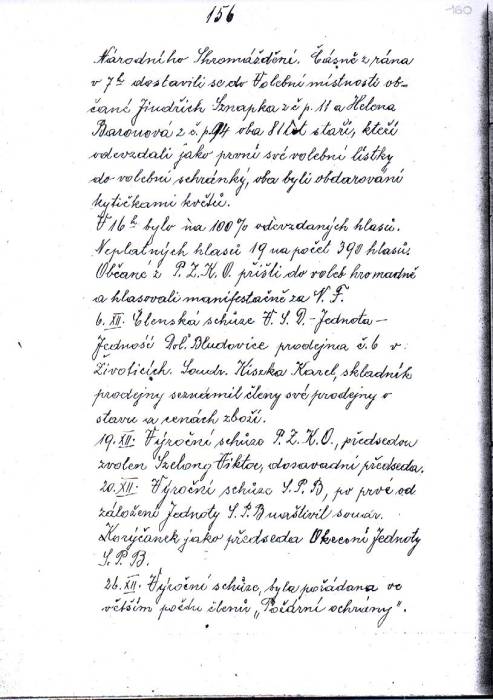 156
160
Národního Shromáždění. Časně z rána
v 7h dostavili se do Volební místnosti ob-
čané Jindřich Sznapka z č p. 11 a Helena
Baronová z č. p. 94 oba 81 let staří, kteří
odevzdali jako první své volební lístky
do volební schránky, oba byli obdarováni
kytičkami květů.
V 16h bylo na 100% odevzdaných hlasů.
Neplatných hlasů 19 na počet 390 hlasů.
Občané z P. Z. K. O. přišli do voleb hromadně
a hlasovali manifestačně za N. F.
6. XII. Členská schůze V. S. D. - Jednota -
Jedność Dol. Bludovice prodejna č. 6 v
Životicích. Soudr. Kiszka Karel, skladník
prodejny seznámil členy své prodejny o
stavu a cenách zboží.
19. XII. Výroční schůze P. Z. K. O., předsedou
zvolen Szelong Viktor, dosavadní předseda.
20. XII. Výroční schůze S. P. B, po prvé od
založení Jednoty S. P. B navštívil soudr.
Koryčánek jako předseda Okresní Jednoty
S. P. B.
26. XII. Výroční schůze, byla pořádana ve
větším počtu členů „Požární ochrány".